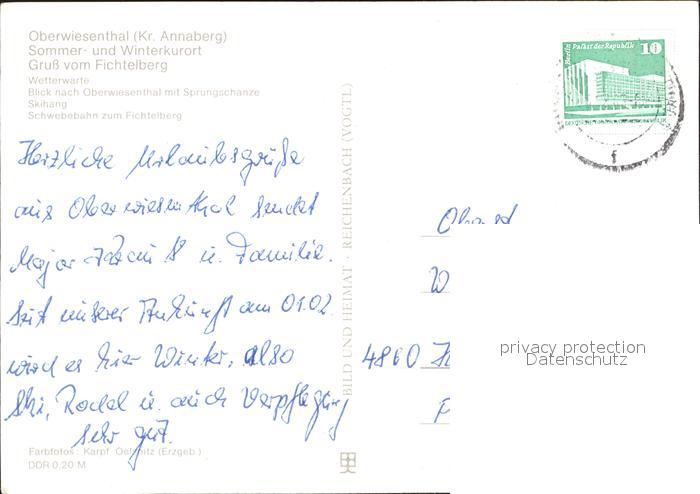 Oberwiesenthal (Kr. Annaberg)
Sommer- und Winterkurort
Gruß vom Fichtelberg
Wetterwarte
Blick nach Oberwiesenthal mit Sprungschanze
Skihang
Schwebebahn zum Fichtelberg
Herzliche Urlaubsgrüße
aus Oberwiesenthal sendet
Major u. Familie.
Seit unserer Ankunft am 01.02.
wird es hier Winter, also
Ski, Rodel u. auch Verpflegung
sehr gut.
Farbfotos: Karpf, Oelsnitz (Erzgeb.)
DDR 0,20 M
BILD UND HEIMAT · REICHENBACH (VOGTL)
Berlin Palast der Republik 10
f
W
4860
privacy protection
Datenschutz